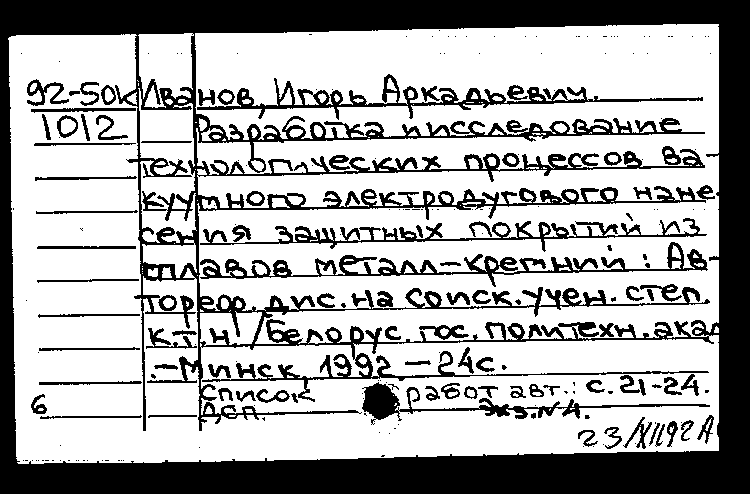 92-50к Иванов, Игорь Аркадьевич.
1012 Разработка и исследование
технологических процессов ва-
куумного электродугового нане-
сения защитных покрытий из
сплавов металл-кремний : Ав-
тореф. дис. на соиск. учен. степ.
к.т.н. /Белорус. гос. политехн. акад
.-Минск, 1992 -24с.
Список работ авт.: с. 21-24.
6 ДСП. экз. N4.
23/XII92